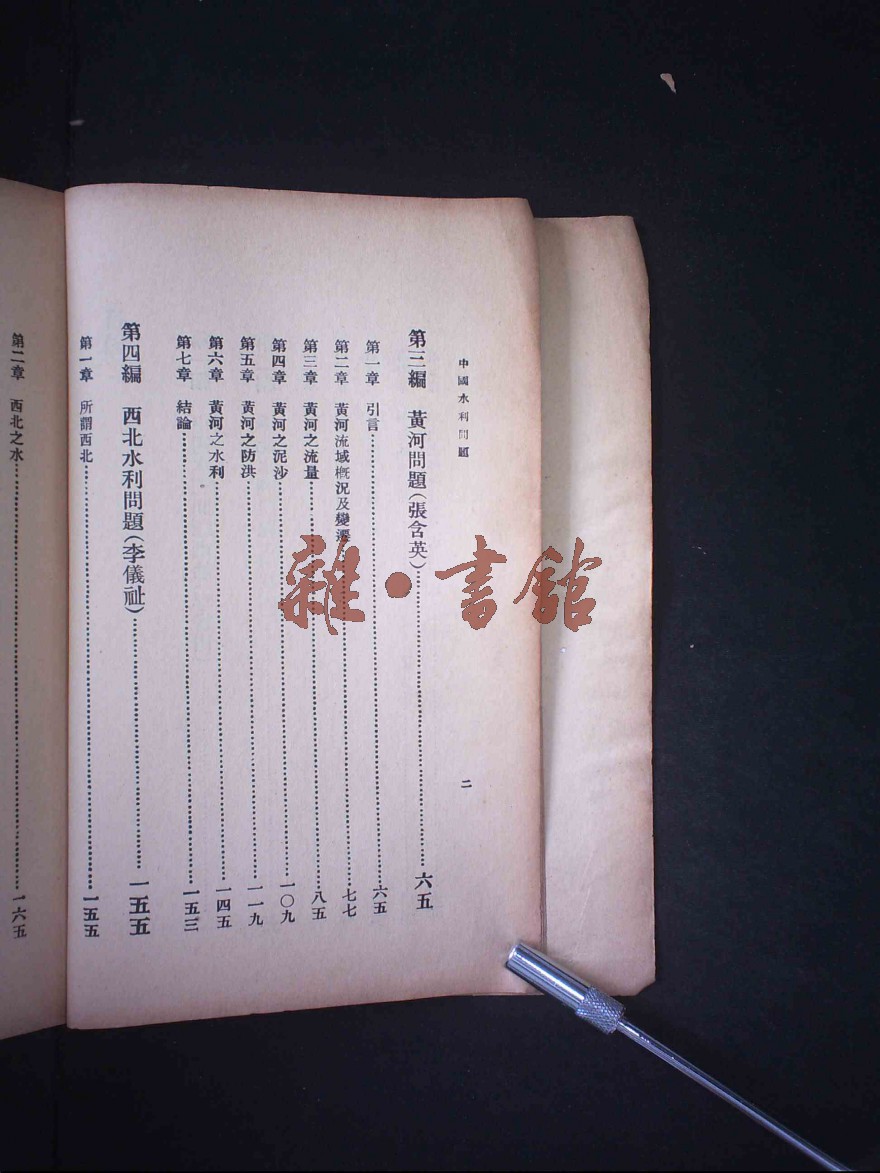 中國水利問題
二
第三編 黃河問題(張含英)……六五
第一章 引言……六五
第二章 黃河流域概況及變遷……七七
第三章 黃河之流量……八五
第四章 黃河之泥沙……一〇九
第五章 黃河之防洪……一一九
第六章 黃河之水利……一四五
第七章 結論……一五三
第四編 西北水利問題(李儀祉)……一五五
第一章 所謂西北……一五五
第二章 西北之水……一六五
雜·書館